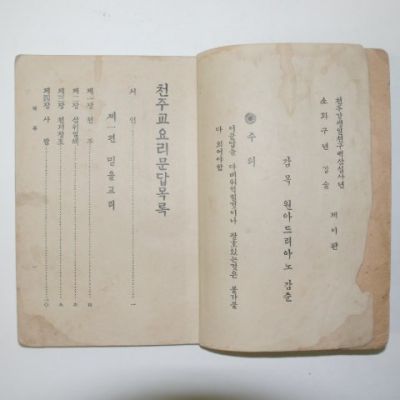 천주강생일천구백삼십사년
소화구년 갑술 제이판
감목 원아드리아노 감준
◉ 주의
이문답을 다배워익힐것이나 괄호있는것은 불가불
다 외어야함
천주교요리문답목록
서 인 一
제一편 믿을교리
제一장 천 주 四
제二장 삼위일체
제三장 천지창조
제四장 사 람 一〇
목 록 一